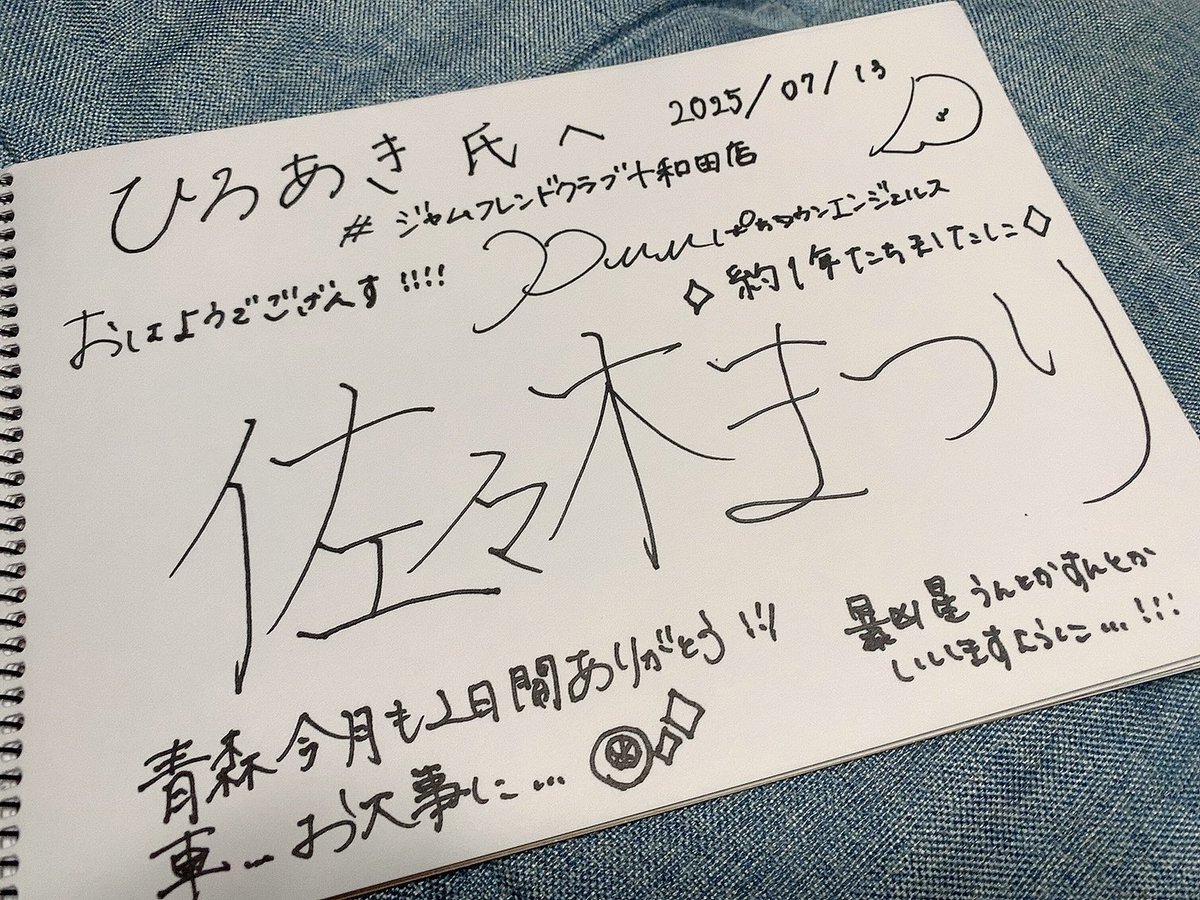 ひろあき氏へ
2025/07/13
#ジャムフレンドクラブ十和田店
おはようでござんす!!!!
エンジェルス
◇約1年たちましたしに◇
佐々木まつり
青森今月も2日間ありがとう!!!
車…お大事に…
暴凶星うんとかすんとか
いいますように…!!!